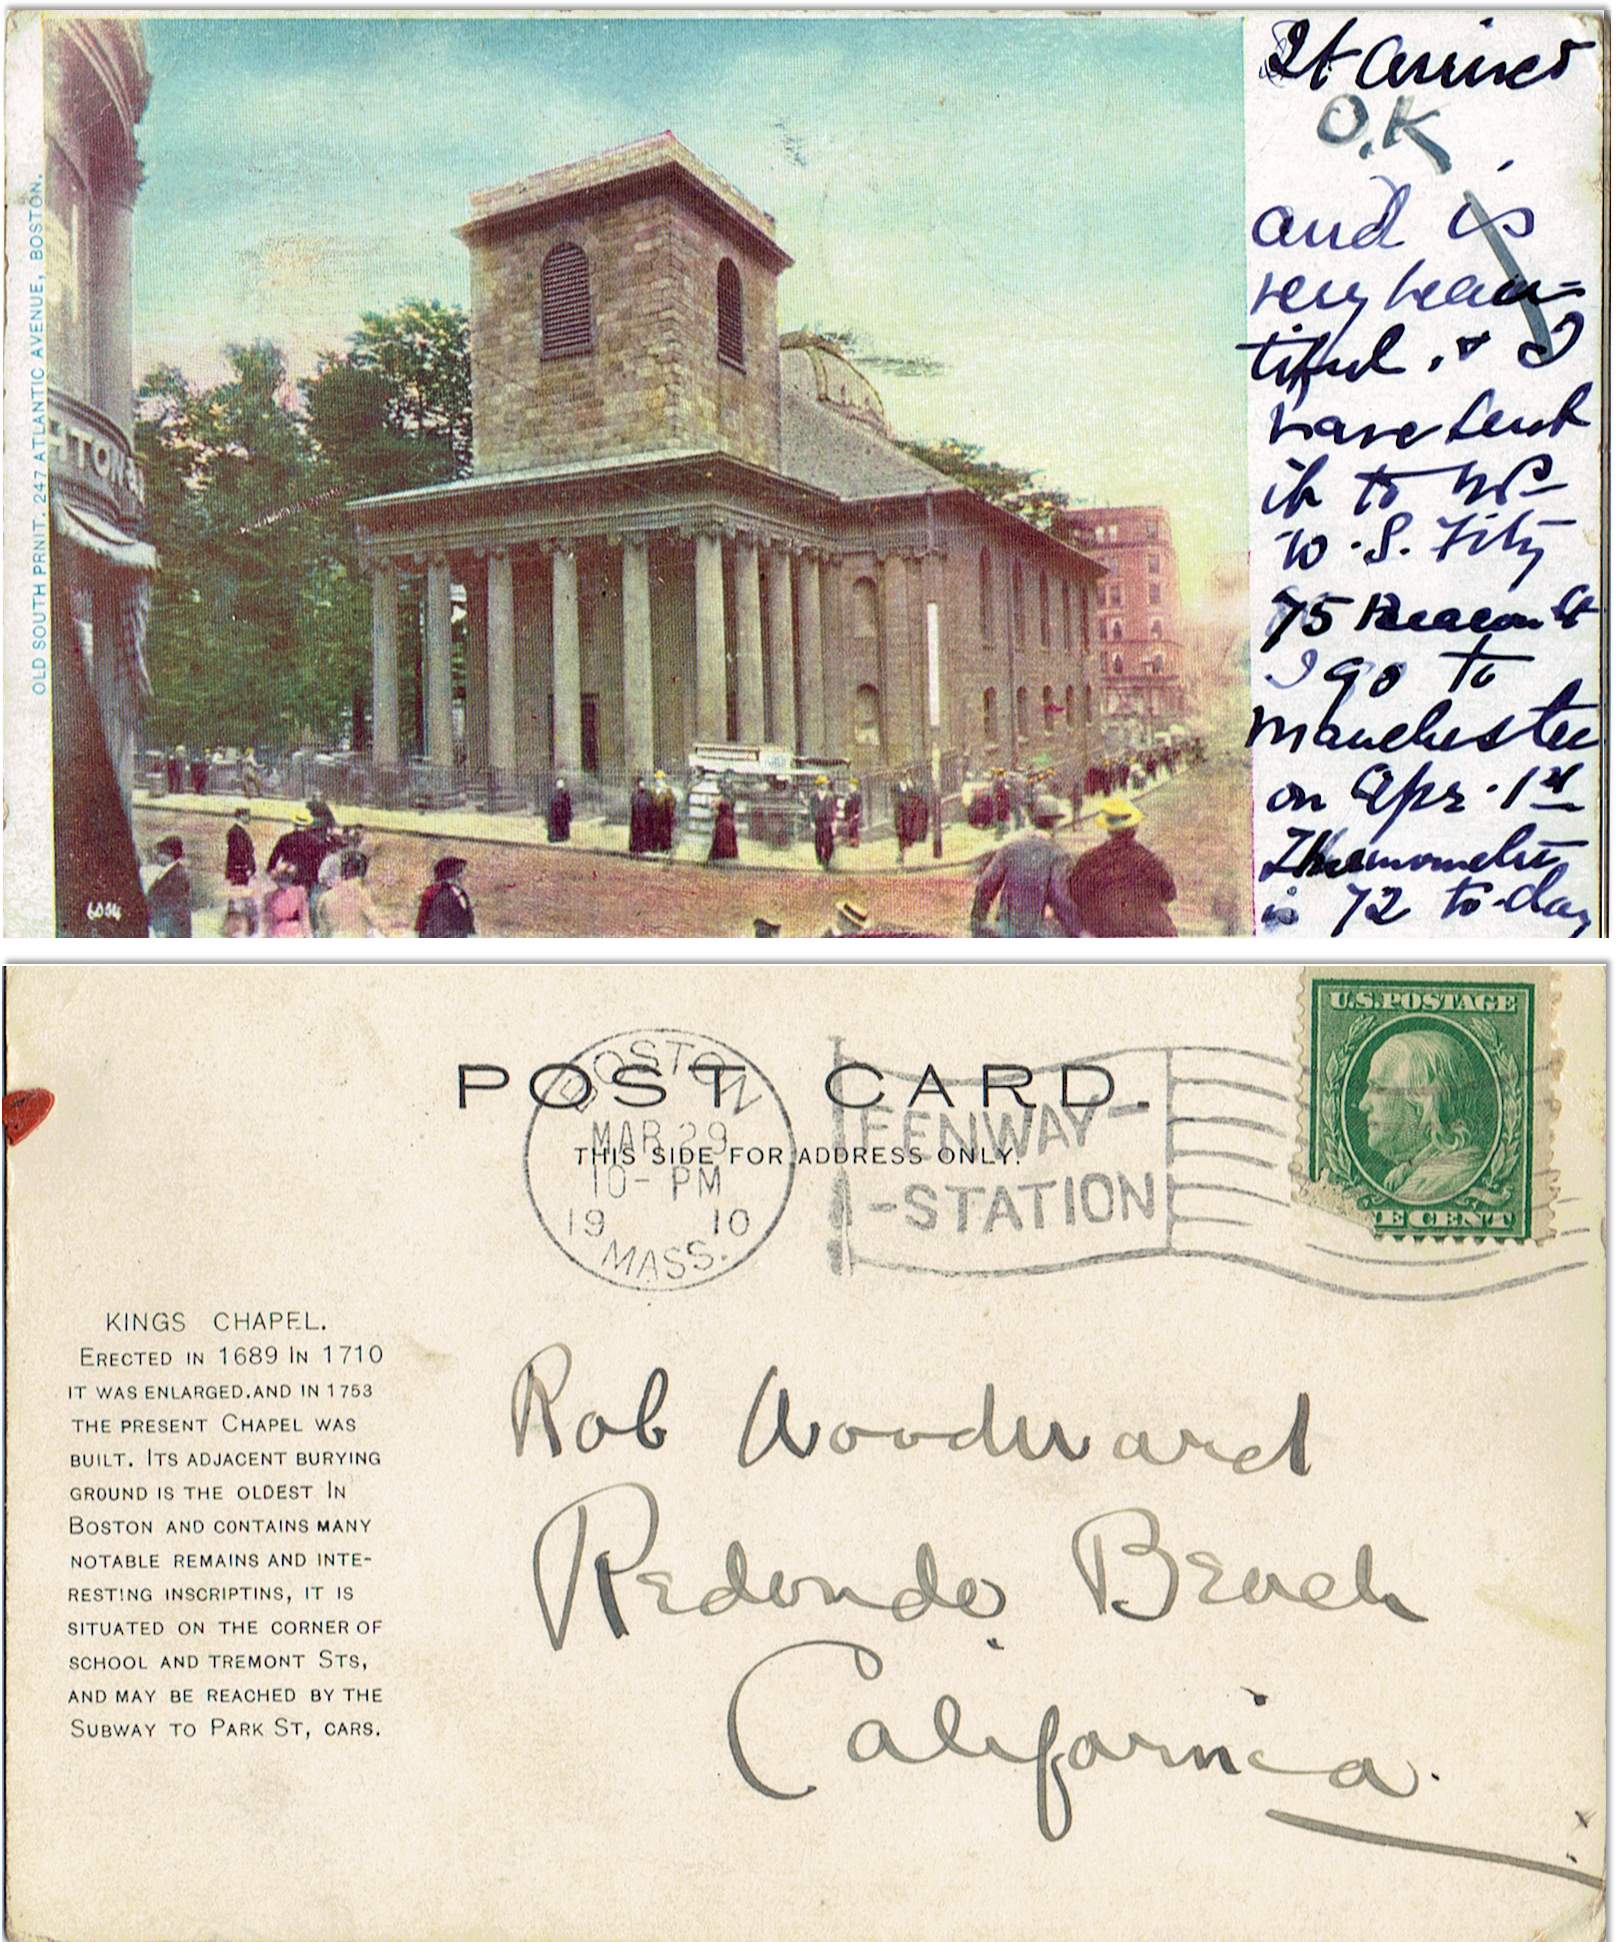 OLD SOUTH PRNIT. 247 ATLANTIC AVENUE, BOSTON.
HTON
6004
It arrived
O.K
and is
very beau-
tiful. & I
have sent
it to Mrs
W. S. Fitz
75 Beacon St
I go to
Manchester
on Apr. 1st
Thermometer
is 72 to-day
POST CARD.
THIS SIDE FOR ADDRESS ONLY.
BOSTON
MAR 29
10-PM
19 10
MASS.
FENWAY-
-STATION
U.S.POSTAGE
E CENT
KINGS CHAPEL.
ERECTED IN 1689 IN 1710
IT WAS ENLARGED.AND IN 1753
THE PRESENT CHAPEL WAS
BUILT. ITS ADJACENT BURYING
GROUND IS THE OLDEST IN
BOSTON AND CONTAINS MANY
NOTABLE REMAINS AND INTE-
RESTING INSCRIPTINS, IT IS
SITUATED ON THE CORNER OF
SCHOOL AND TREMONT STS,
AND MAY BE REACHED BY THE
SUBWAY TO PARK ST, CARS.
Rob Woodward
Redondo Beach
California.